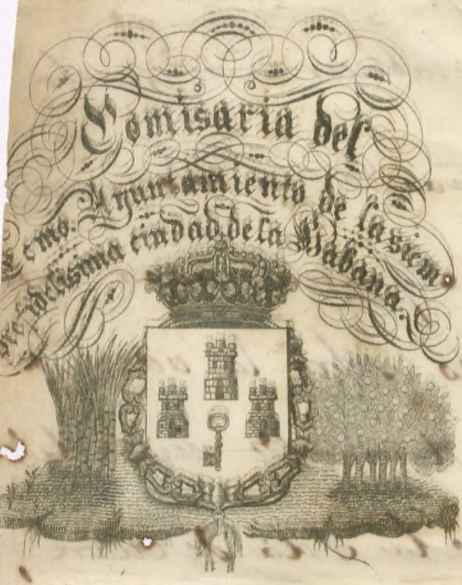 Comisaria del
Ecmo. Ayuntamiento de la siem
pre fidelisima ciudad de la Habana.